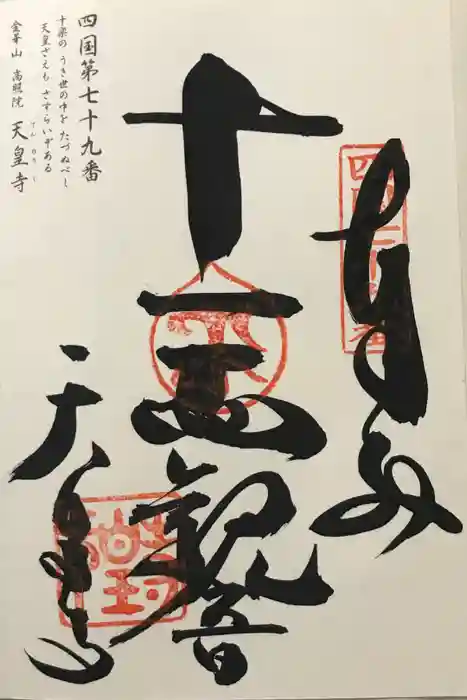 奉納
十一面観音
天皇寺
四国第七十九番
十楽の うき世の中を たづぬべし
天皇さえも さすらいぞある
金華山 高照院 天皇寺
てんのうじ